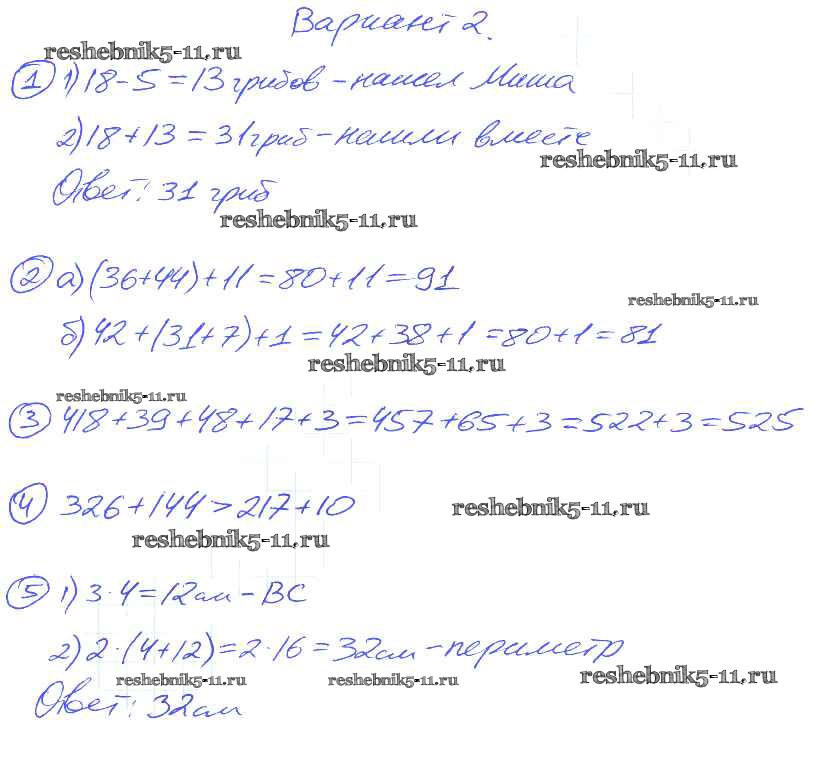 Вариант 2.
reshebnik5-11.ru
① 1) 18-5=13 грибов - нашел Миша
2) 18+13=31 гриб - нашли вместе
reshebnik5-11.ru
Ответ: 31 гриб
reshebnik5-11.ru
② а) (36+44)+11=80+11=91
reshebnik5-11.ru
б) 42+(31+7)+1=42+38+1=80+1=81
reshebnik5-11.ru
reshebnik5-11.ru
③ 418+39+48+17+3=457+65+3=522+3=525
④ 326+144>217+10
reshebnik5-11.ru
reshebnik5-11.ru
⑤ 1) 3·4=12см - ВС
2) 2·(4+12)=2·16=32см - периметр
reshebnik5-11.ru reshebnik5-11.ru reshebnik5-11.ru
Ответ: 32см